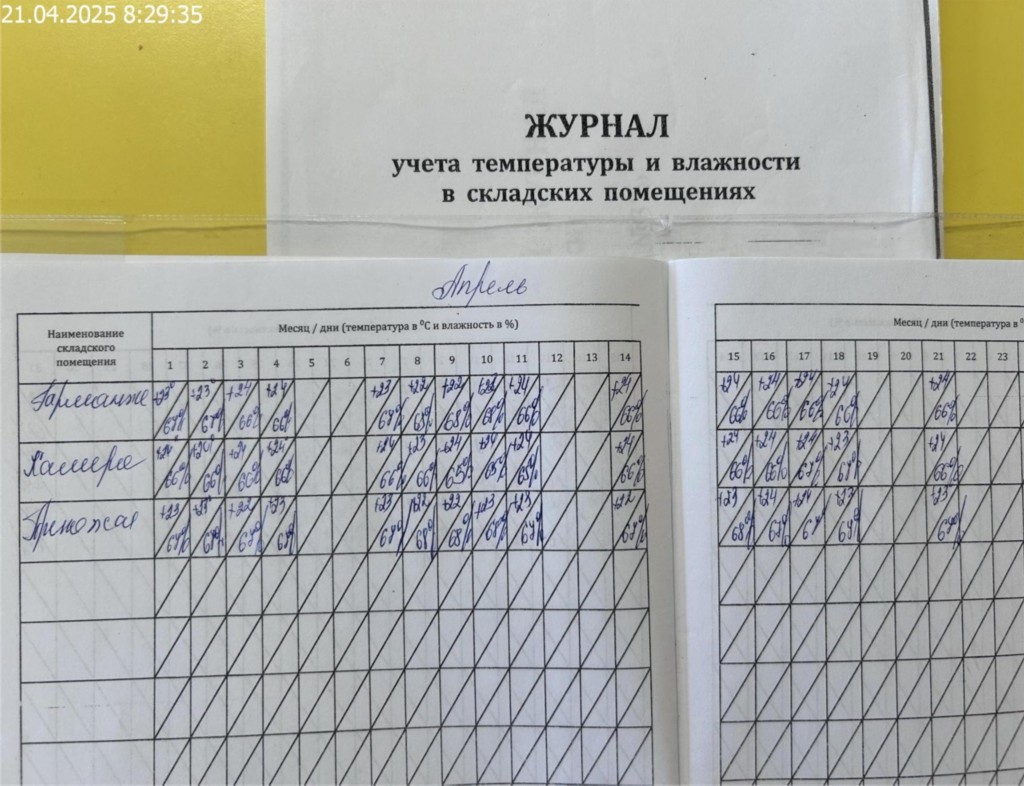 21.04.2025 8:29:35
ЖУРНАЛ
учета температуры и влажности
в складских помещениях
Апрель
Наименование складского помещения
Месяц / дни (температура в ⁰С и влажность в %)
Месяц / дни (температура в ⁰
1 2 3 4 5 6 7 8 9 10 11 12 13 14
15 16 17 18 19 20 21 22 23
+23° +23° +24 +24 +23 +22 +22 +22 +24 +24
+24 +24 +24 +24 +24
67% 67% 66% 66% 67% 68% 68% 68% 66% 66%
66% 66% 66% 66% 66%
Камера
+24 +24 +24 +23 +24 +24 +24 +24
+24 +24 +24 +23 +24
66% 66% 66% 66% 66% 66% 65% 65% 65% 66%
+23 +23 +22 +23 +23 +22 +22 +23 +23 +22
+23 +24 +24 +23 +23
67% 67% 67% 67% 68% 68% 68% 67% 67% 67%
68% 67% 67% 67% 67%